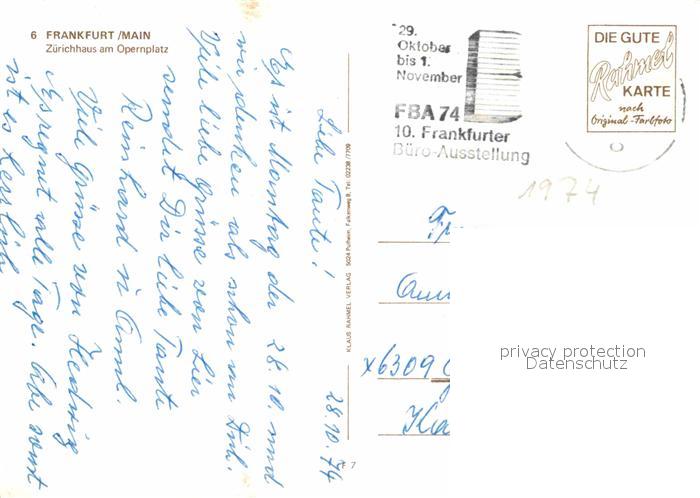 6 FRANKFURT /MAIN
Zürichhaus am Opernplatz
29.
Oktober
bis 1.
November
FBA 74
10. Frankfurter
Büro-Ausstellung
DIE GUTE
Rahmel
KARTE
nach
Original-Farbfoto
1974
28.10.74
Liebe Tante!
Es ist Montag der 28.10. und
wir denken als schon an Dich.
Viele liebe Grüsse von hier
sendet Dir liebe Tante
Reinhard u Annel.
Viele Grüsse von Hedwig
Es regnet alle Tage. Aber sonst
ist es herrlich
KLAUS RAHMEL VERLAG 5024 Pulheim Falkenweg 8, Tel. 02238/7709
F 7
x6309
privacy protection
Datenschutz